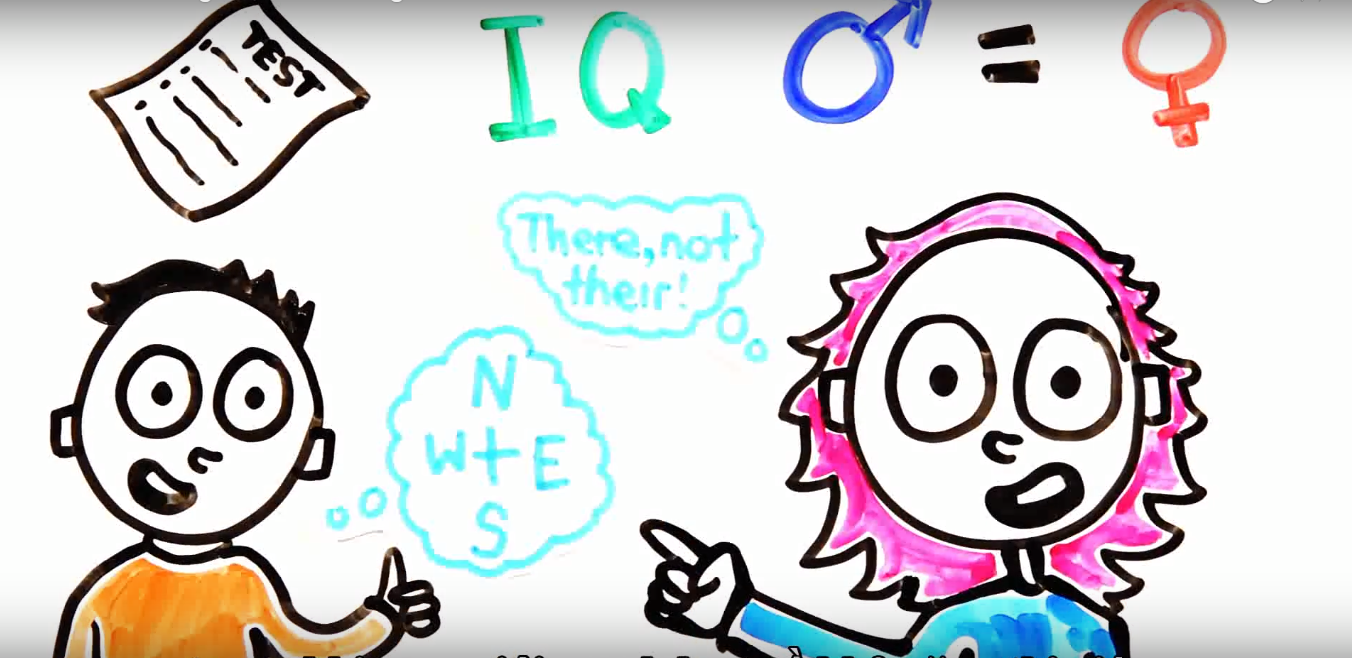 TEST
IQ
There, not
their!
N
W E
S